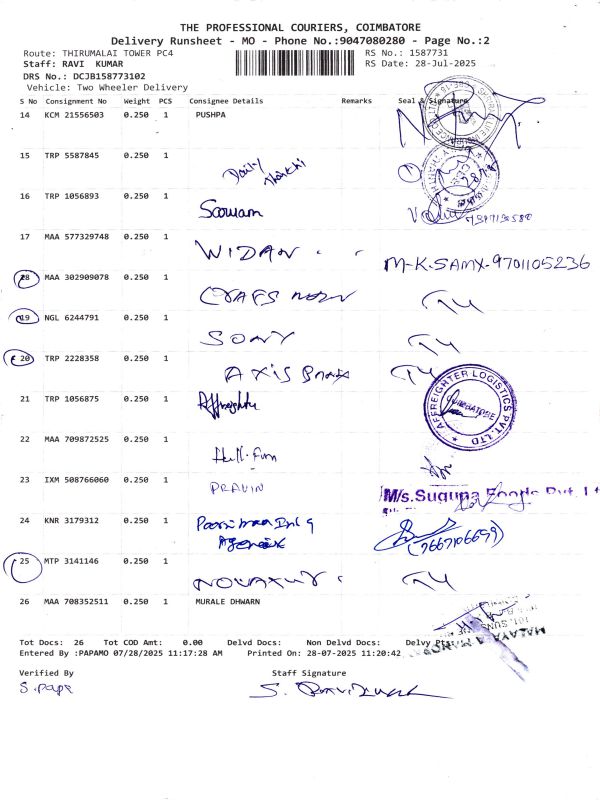 THE PROFESSIONAL COURIERS, COIMBATORE
Delivery Runsheet - MO - Phone No.:9047080280 - Page No.:2
Route: THIRUMALAI TOWER PC4 RS No.: 1587731
Staff: RAVI KUMAR RS Date: 28-Jul-2025
DRS No.: DCJB158773102
Vehicle: Two Wheeler Delivery
S No Consignment No Weight PCS Consignee Details Remarks Seal & Signature
14 KCM 21556503 0.250 1 PUSHPA
15 TRP 5587845 0.250 1
Daily
16 TRP 1056893 0.250 1
17 MAA 577329748 0.250 1
WIDAN M-K.SAMX-9701105236
18 MAA 302909078 0.250 1
19 NGL 6244791 0.250 1
SONY
20 TRP 2228358 0.250 1
AXIS BANK
AFFREIGHTER LOGISTICS PVT. LTD
COIMBATORE
21 TRP 1056875 0.250 1
22 MAA 709872525 0.250 1
23 IXM 508766060 0.250 1
PRAVIN M/s.Suguna Foods Pvt. Lt
24 KNR 3179312 0.250 1
(7667106699)
25 MTP 3141146 0.250 1
26 MAA 708352511 0.250 1 MURALE DHWARN
MALAYALA MANORA
Tot Docs: 26 Tot COD Amt: 0.00 Delvd Docs: Non Delvd Docs: Delvy
Entered By :PAPAMO 07/28/2025 11:17:28 AM Printed On: 28-07-2025 11:20:42
Verified By Staff Signature
S. Papa S. Ravikumar